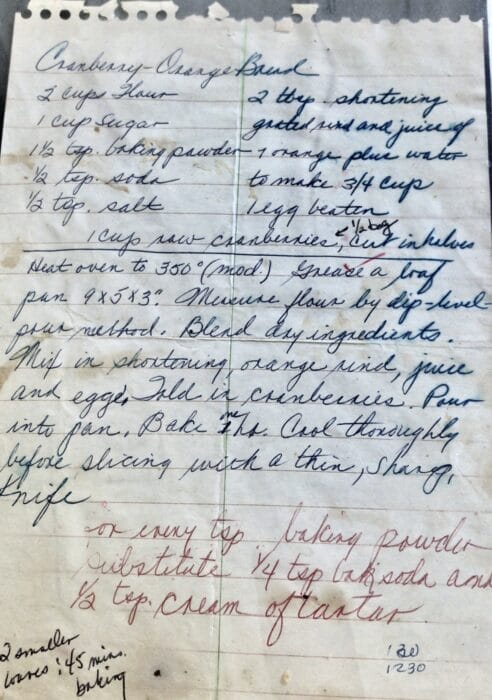 Cranberry-Orange Bread
2 cups Flour
1 cup Sugar
1 1/2 tsp. baking powder
1/2 tsp. soda
1/2 tsp. salt
2 tbsp. shortening
grated rind and juice of
1 orange plus water
to make 3/4 cup
1 egg beaten
1/2 bag
1 cup raw cranberries, cut in halves
Heat oven to 350° (mod.) Grease a loaf
pan 9x5x3". Measure flour by dip-level-
pour method. Blend dry ingredients.
Mix in shortening, orange rind, juice
and egg. Fold in cranberries. Pour
into pan. Bake 1 hr. Cool thoroughly
before slicing with a thin, sharp,
knife
for every tsp baking powder
substitute 1/4 tsp bak soda and
1/2 tsp. cream of tartar
2 smaller
loaves: 45 mins.
baking
1230